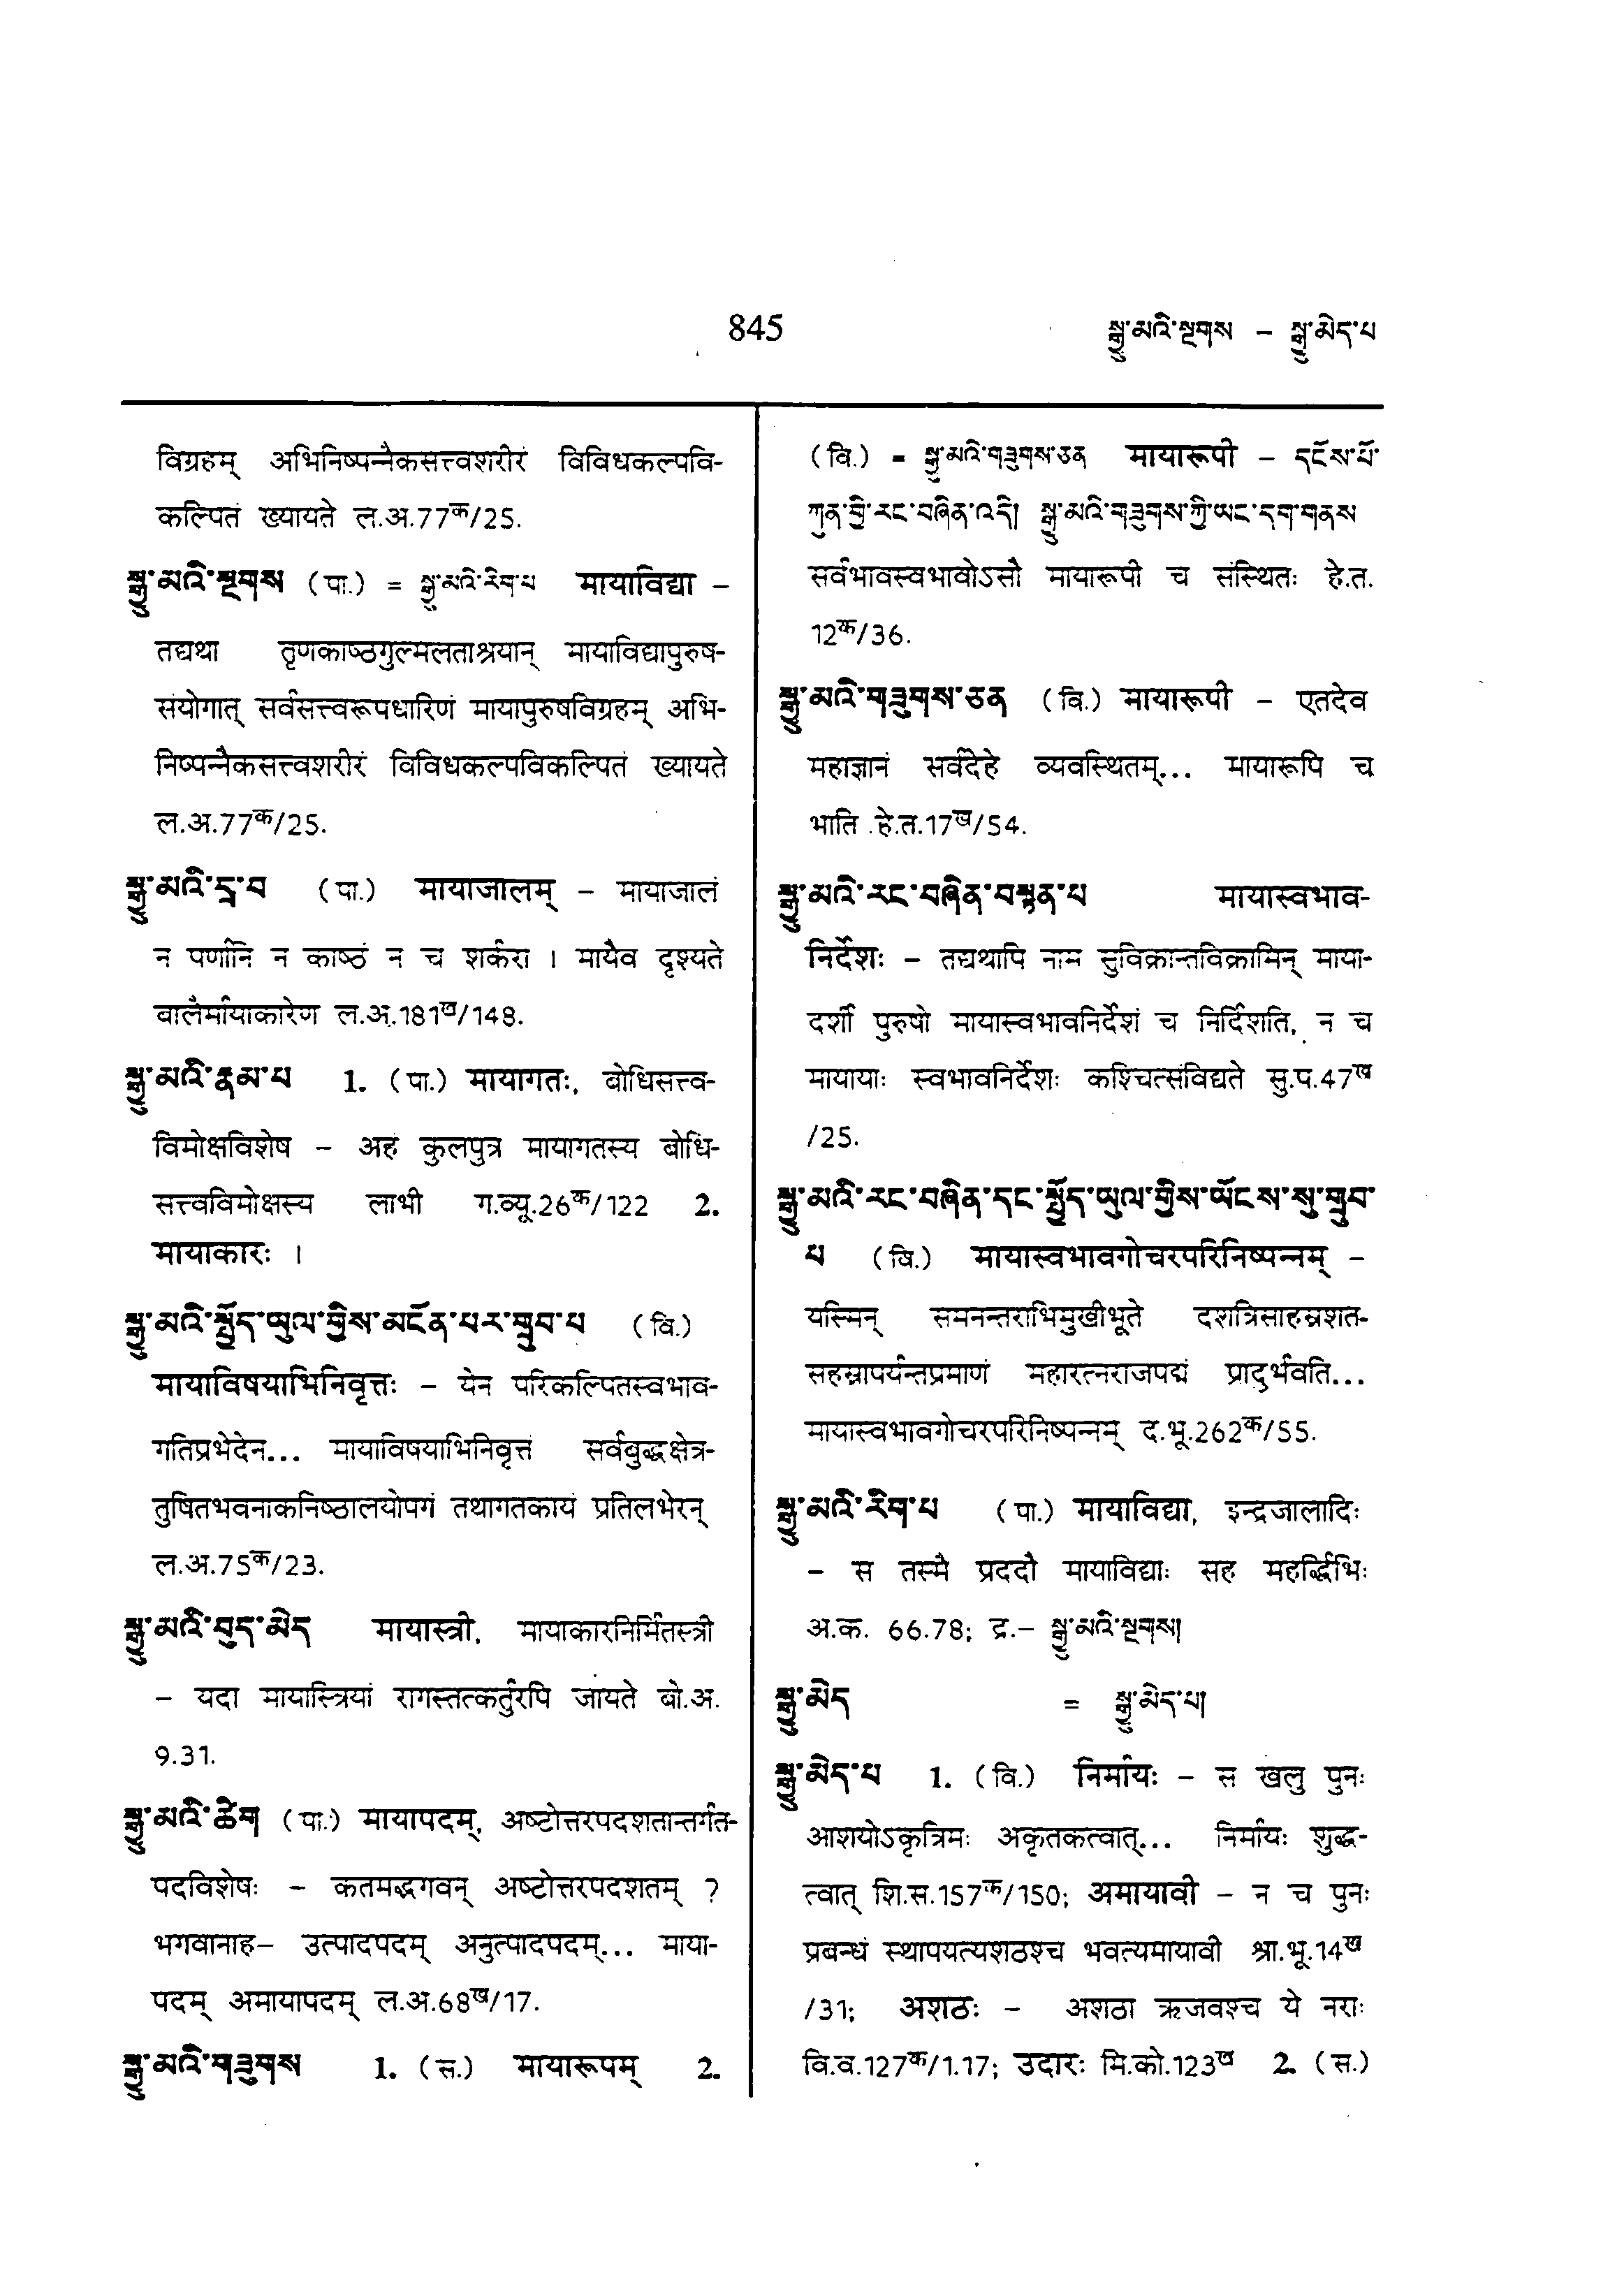 845 སྒྱུ་མའི་སྔགས – སྒྱུ་མེད་པ
विग्रहम् अभिनिष्पन्नैकसत्त्वशरीरं विविधकल्पवि-
कल्पितं ख्यायते ल.अ.77क/25.
སྒྱུ་མའི་སྔགས (पा.) = སྒྱུ་མའི་རིག་པ मायाविद्या –
तद्यथा तृणकाष्ठगुल्मलताश्रयान् मायाविद्यापुरुष-
संयोगात् सर्वसत्त्वरूपधारिणं मायापुरुषविग्रहम् अभि-
निष्पन्नैकसत्त्वशरीरं विविधकल्पविकल्पितं ख्यायते
ल.अ.77क/25.
སྒྱུ་མའི་དྲ་བ (पा.) मायाजालम् – मायाजालं
न पर्णानि न काष्ठं न च शर्करा । मायैव दृश्यते
बालैर्मायाकारेण ल.अ.181ख/148.
སྒྱུ་མའི་རྣམ་པ 1. (पा.) मायागतः, बोधिसत्त्व-
विमोक्षविशेष – अहं कुलपुत्र मायागतस्य बोधि-
सत्त्वविमोक्षस्य लाभी ग.व्यू.26क/122 2.
मायाकारः ।
སྒྱུ་མའི་སྤྱོད་ཡུལ་གྱིས་མངོན་པར་གྲུབ་པ (वि.)
मायाविषयाभिनिवृत्तः – येन परिकल्पितस्वभाव-
गतिप्रभेदेन... मायाविषयाभिनिवृत्तं सर्वबुद्धक्षेत्र-
तुषितभवनाकनिष्ठालयोपगं तथागतकायं प्रतिलभेरन्
ल.अ.75क/23.
སྒྱུ་མའི་བུད་མེད मायास्त्री, मायाकारनिर्मितस्त्री
– यदा मायास्त्रियां रागस्तत्कर्तुरपि जायते बो.अ.
9.31.
སྒྱུ་མའི་ཚིག (पा.) मायापदम्, अष्टोत्तरपदशतान्तर्गत-
पदविशेषः – कतमद्भगवन् अष्टोत्तरपदशतम् ?
भगवानाह– उत्पादपदम् अनुत्पादपदम्... माया-
पदम् अमायापदम् ल.अ.68ख/17.
སྒྱུ་མའི་གཟུགས 1. (स.) मायारूपम् 2.
(वि.) = སྒྱུ་མའི་གཟུགས་ཅན मायारूपी – དངོས་པོ་
ཀུན་གྱི་རང་བཞིན་འདི། སྒྱུ་མའི་གཟུགས་ཀྱི་ཡང་དག་གནས
सर्वभावस्वभावोऽसौ मायारूपी च संस्थितः हे.त.
12क/36.
སྒྱུ་མའི་གཟུགས་ཅན (वि.) मायारूपी – एतदेव
महाज्ञानं सर्वदेहे व्यवस्थितम्... मायारूपि च
भाति हे.त.17ख/54.
སྒྱུ་མའི་རང་བཞིན་བསྟན་པ मायास्वभाव-
निर्देशः – तद्यथापि नाम सुविक्रान्तविक्रामिन् माया-
दर्शी पुरुषो मायास्वभावनिर्देशं च निर्दिशति, न च
मायायाः स्वभावनिर्देशः कश्चित्संविद्यते सु.प.47ख
/25.
སྒྱུ་མའི་རང་བཞིན་དང་སྤྱོད་ཡུལ་གྱིས་ཡོངས་སུ་གྲུབ་
པ (वि.) मायास्वभावगोचरपरिनिष्पन्नम् –
यस्मिन् समनन्तराभिमुखीभूते दशत्रिसाहस्रशत-
सहस्रापर्यन्तप्रमाणं महारत्नराजपद्मं प्रादुर्भवति...
मायास्वभावगोचरपरिनिष्पन्नम् द.भू.262क/55.
སྒྱུ་མའི་རིག་པ (पा.) मायाविद्या, इन्द्रजालादिः
– स तस्मै प्रददौ मायाविद्याः सह महर्द्धिभिः
अ.क. 66.78; द्र.– སྒྱུ་མའི་སྔགས།
སྒྱུ་མེད = སྒྱུ་མེད་པ།
སྒྱུ་མེད་པ 1. (वि.) निर्मायः – स खलु पुनः
आशयोऽकृत्रिमः अकृतकत्वात्... निर्मायः शुद्ध-
त्वात् शि.स.157क/150; अमायावी – न च पुनः
प्रबन्धं स्थापयत्यशठश्च भवत्यमायावी श्रा.भू.14ख
/31; अशठः – अशठा ऋजवश्च ये नराः
वि.व.127क/1.17; उदारः मि.को.123ख 2. (स.)